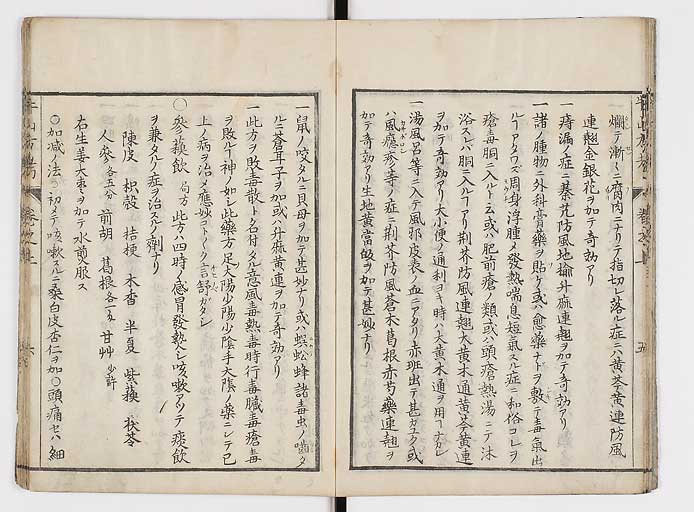 一爛テ漸々ニ腐肉ニナリテ指切レ落ル症ニハ黄芩黄連防風
連翹金銀花ヲ加テ奇効アリ
一痔漏ノ症ニ秦艽防風地榆升麻連翹ヲ加テ奇効アリ
一諸ノ腫物ニ外科膏藥ヲ貼ケ或ハ愈藥ナドヲ敷テ毒氣出
ルヿアタワズ周身浮腫メ發熱喘息短氣スル症ニ和俗コレヲ
瘡毒胴ニ入ルト云或ハ肥前瘡ノ類或ハ頭瘡熱湯ニテ沐
浴スレバ胴ニ入ルヿアリ荆芥防風連翹大黄木通黄芩黄連
ヲ加テ奇効アリ大小便ノ通利ヨキ時ハ大黄木通ヲ用ユベカラズ
一湯風呂等ニ入テ風邪皮表ノ血ニアタリ赤班出テ甚カユク或
ハ風癮疹等ノ症ニ荆芥防風蒼朮葛根赤芍藥連翹ヲ
加テ奇効アリ生地黄當皈ヲ加テ甚妙ナリ
一鼠ノ咬タルニ貝母ヲ加テ甚妙ナリ或ハ蜈蚣蜂諸毒虫ノ嚙タ
ルニ蒼耳子ヲ加或ハ升麻黄連ヲ加テ奇効アリ
一此方ヲ敗毒散ト名付タル意風毒熱毒時行毒臓毒瘡毒
ヲ敗ルヿ神ノ如シ此藥方足太陽少陽少陰手太陰ノ藥ニシテ已
上ノ病ヲ治メ應妙コトゴトク言舒ガタシ
○參蘓飲 局方 此方ハ四時ノ感冒發熱シ咳嗽アツテ痰飲
ヲ兼タルノ症ヲ治スルノ劑ナリ
陳皮 枳殻 桔梗 木香 半夏 紫蘓 茯苓
人參各五分 前胡 葛根各一匁 甘艸少許
右生姜大枣ヲ加テ水煎服ス
○加減ノ法ニ初メテ咳嗽スルニ桑白皮杏仁ヲ加○頭痛セバ細
牛山方考 卷之上
六
五